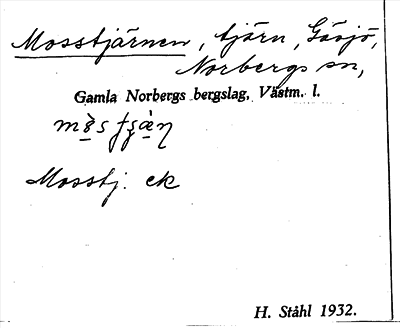 Mosstjärnen, tjärn, Gäsjö,
Norbergs sn,
Gamla Norbergs bergslag, Västm. l.
Mosstj. ek
H. Ståhl 1932.